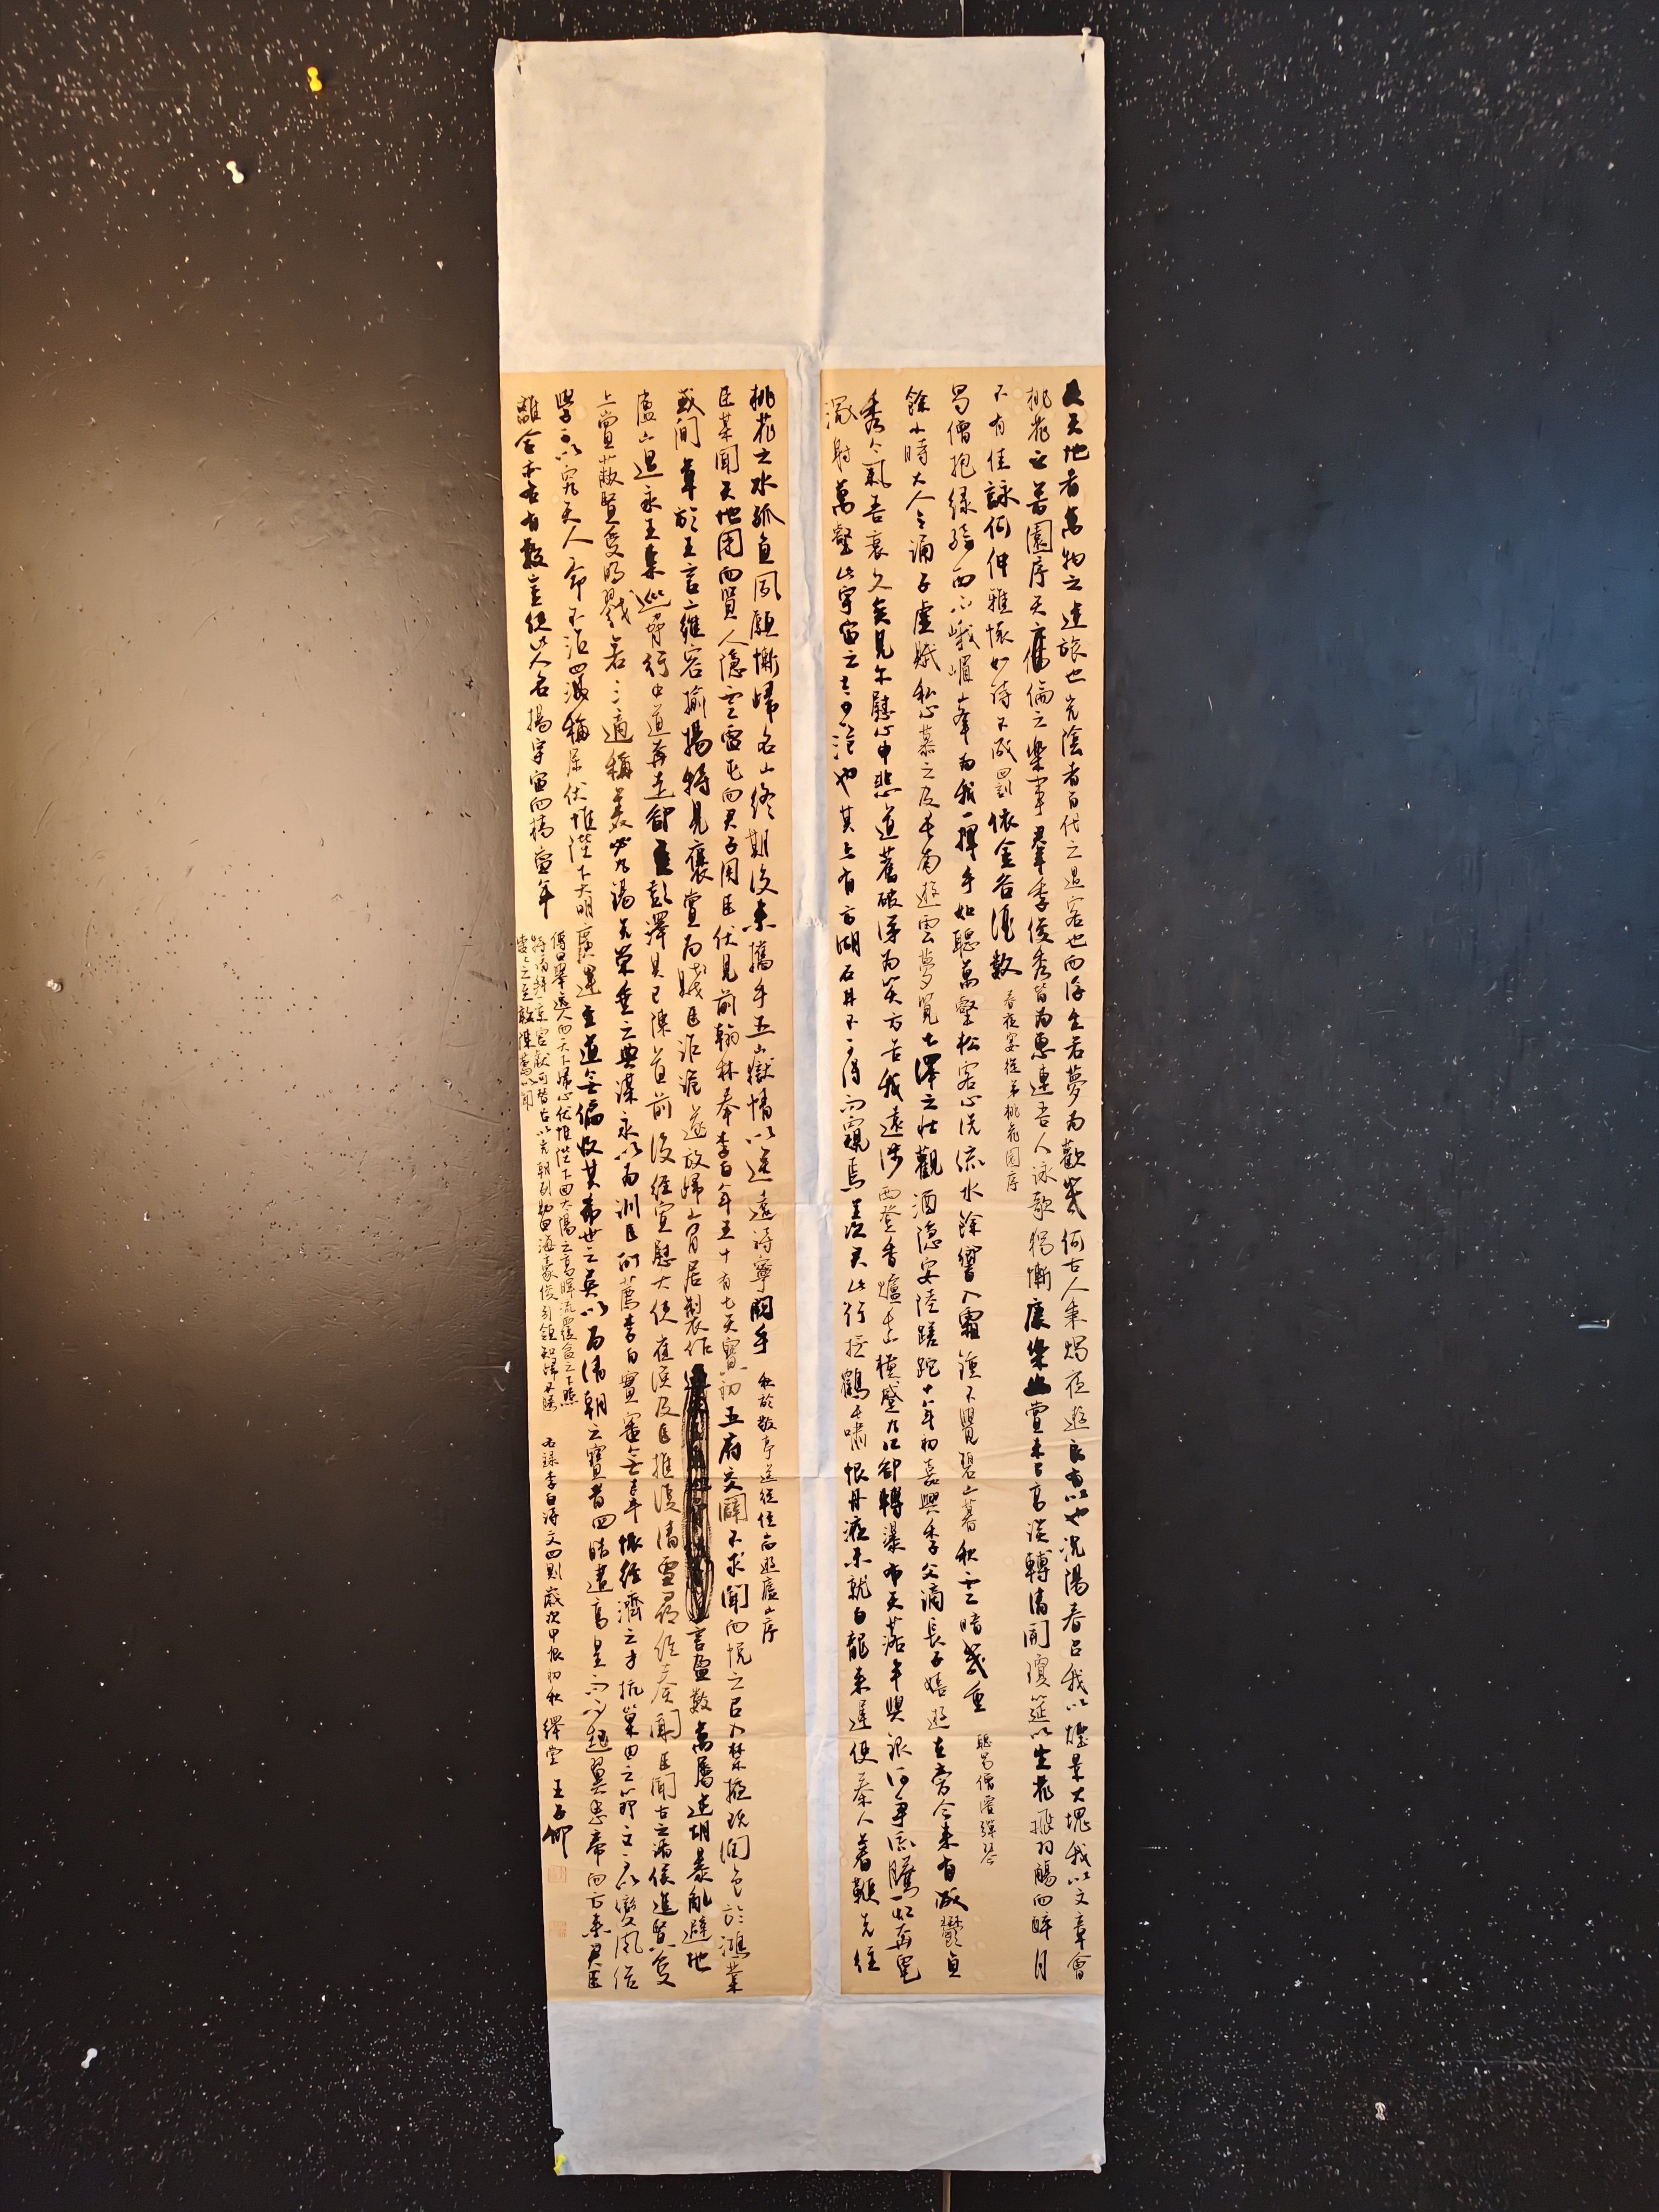 夫天地者萬物之逆旅也光陰者百代之過客也而浮生若夢為歡幾何古人秉燭夜遊良有以也況陽春召我以煙景大塊我以文章會
桃花之芳園序天倫之樂事群季俊秀皆為惠連吾人詠歌獨慚康樂幽賞未已高談轉清開瓊筵以坐花飛羽觴而醉月
不有佳詠何伸雅懷如詩不成罰依金谷酒數 春夜宴從弟桃花園序
蜀僧抱綠綺西下峨嵋峰為我一揮手如聽萬壑松客心洗流水餘響入霜鐘不覺碧山暮秋雲暗幾重 聽蜀僧濬彈琴
餘小時大人令誦子虛賦私心慕之及長南遊雲夢覽七澤之壯觀酒隱安陸蹉跎十年初嘉興季父謫長沙西還時
秀氣吾衰久矣見爾慰心申悲道舊破涕為笑方告我遠涉西登香爐長山橫蹙九江卻轉瀑布天落半與銀河爭流騰虹奔電
潈射萬壑此宇宙之奇詭也其上有方湖石井不可得而窺焉羨君此行撫鶴長嘯恨丹液未就白龍來遲使秦人著鞭先往
桃花之水孤負夙願慚歸名山終期後來攜手五嶽情以送遠詩寧闕乎 秋於敬亭送從侄耑遊廬山序
臣某聞天地閉而賢人隱雲雷屯而君子用臣伏見前翰林奉李白年五十有七天寶初五府交辟不求聞而悅之召入禁掖既潤色於鴻業
或間草於王言雍容揄揚特見褒賞為賤臣詐詭遂放歸山閑居製作言盈數萬屬逆胡暴亂避地
廬山遇永王東巡脅行中道奔走卻至彭澤具已陳首前後經宣慰大使崔渙及臣推覆清雪尋經奏聞臣聞古之諸侯進賢受
上賞蔽賢受明戮若三適稱美必九錫先榮垂之典謨永以為訓臣所薦李白實審無辜懷經濟之才抗巢由之節文可以變風俗
學可以究天人一命不沾四海稱屈伏惟陛下大明廣運至道無偏收其希世之英以為清朝之寶昔四皓遭高皇而不起翼惠帝而方來君臣
離合亦各有數豈使此人名揚宇宙而槁當年
傳曰舉逸人而天下歸心伏惟陛下回太陽之高暉流覆盆之下照
特請拜一京官獻可替否以光朝列則四海豪俊引領知歸不勝
之至敢陳薦以聞
右錄李白詩文四則歲次甲辰初秋繹堂王